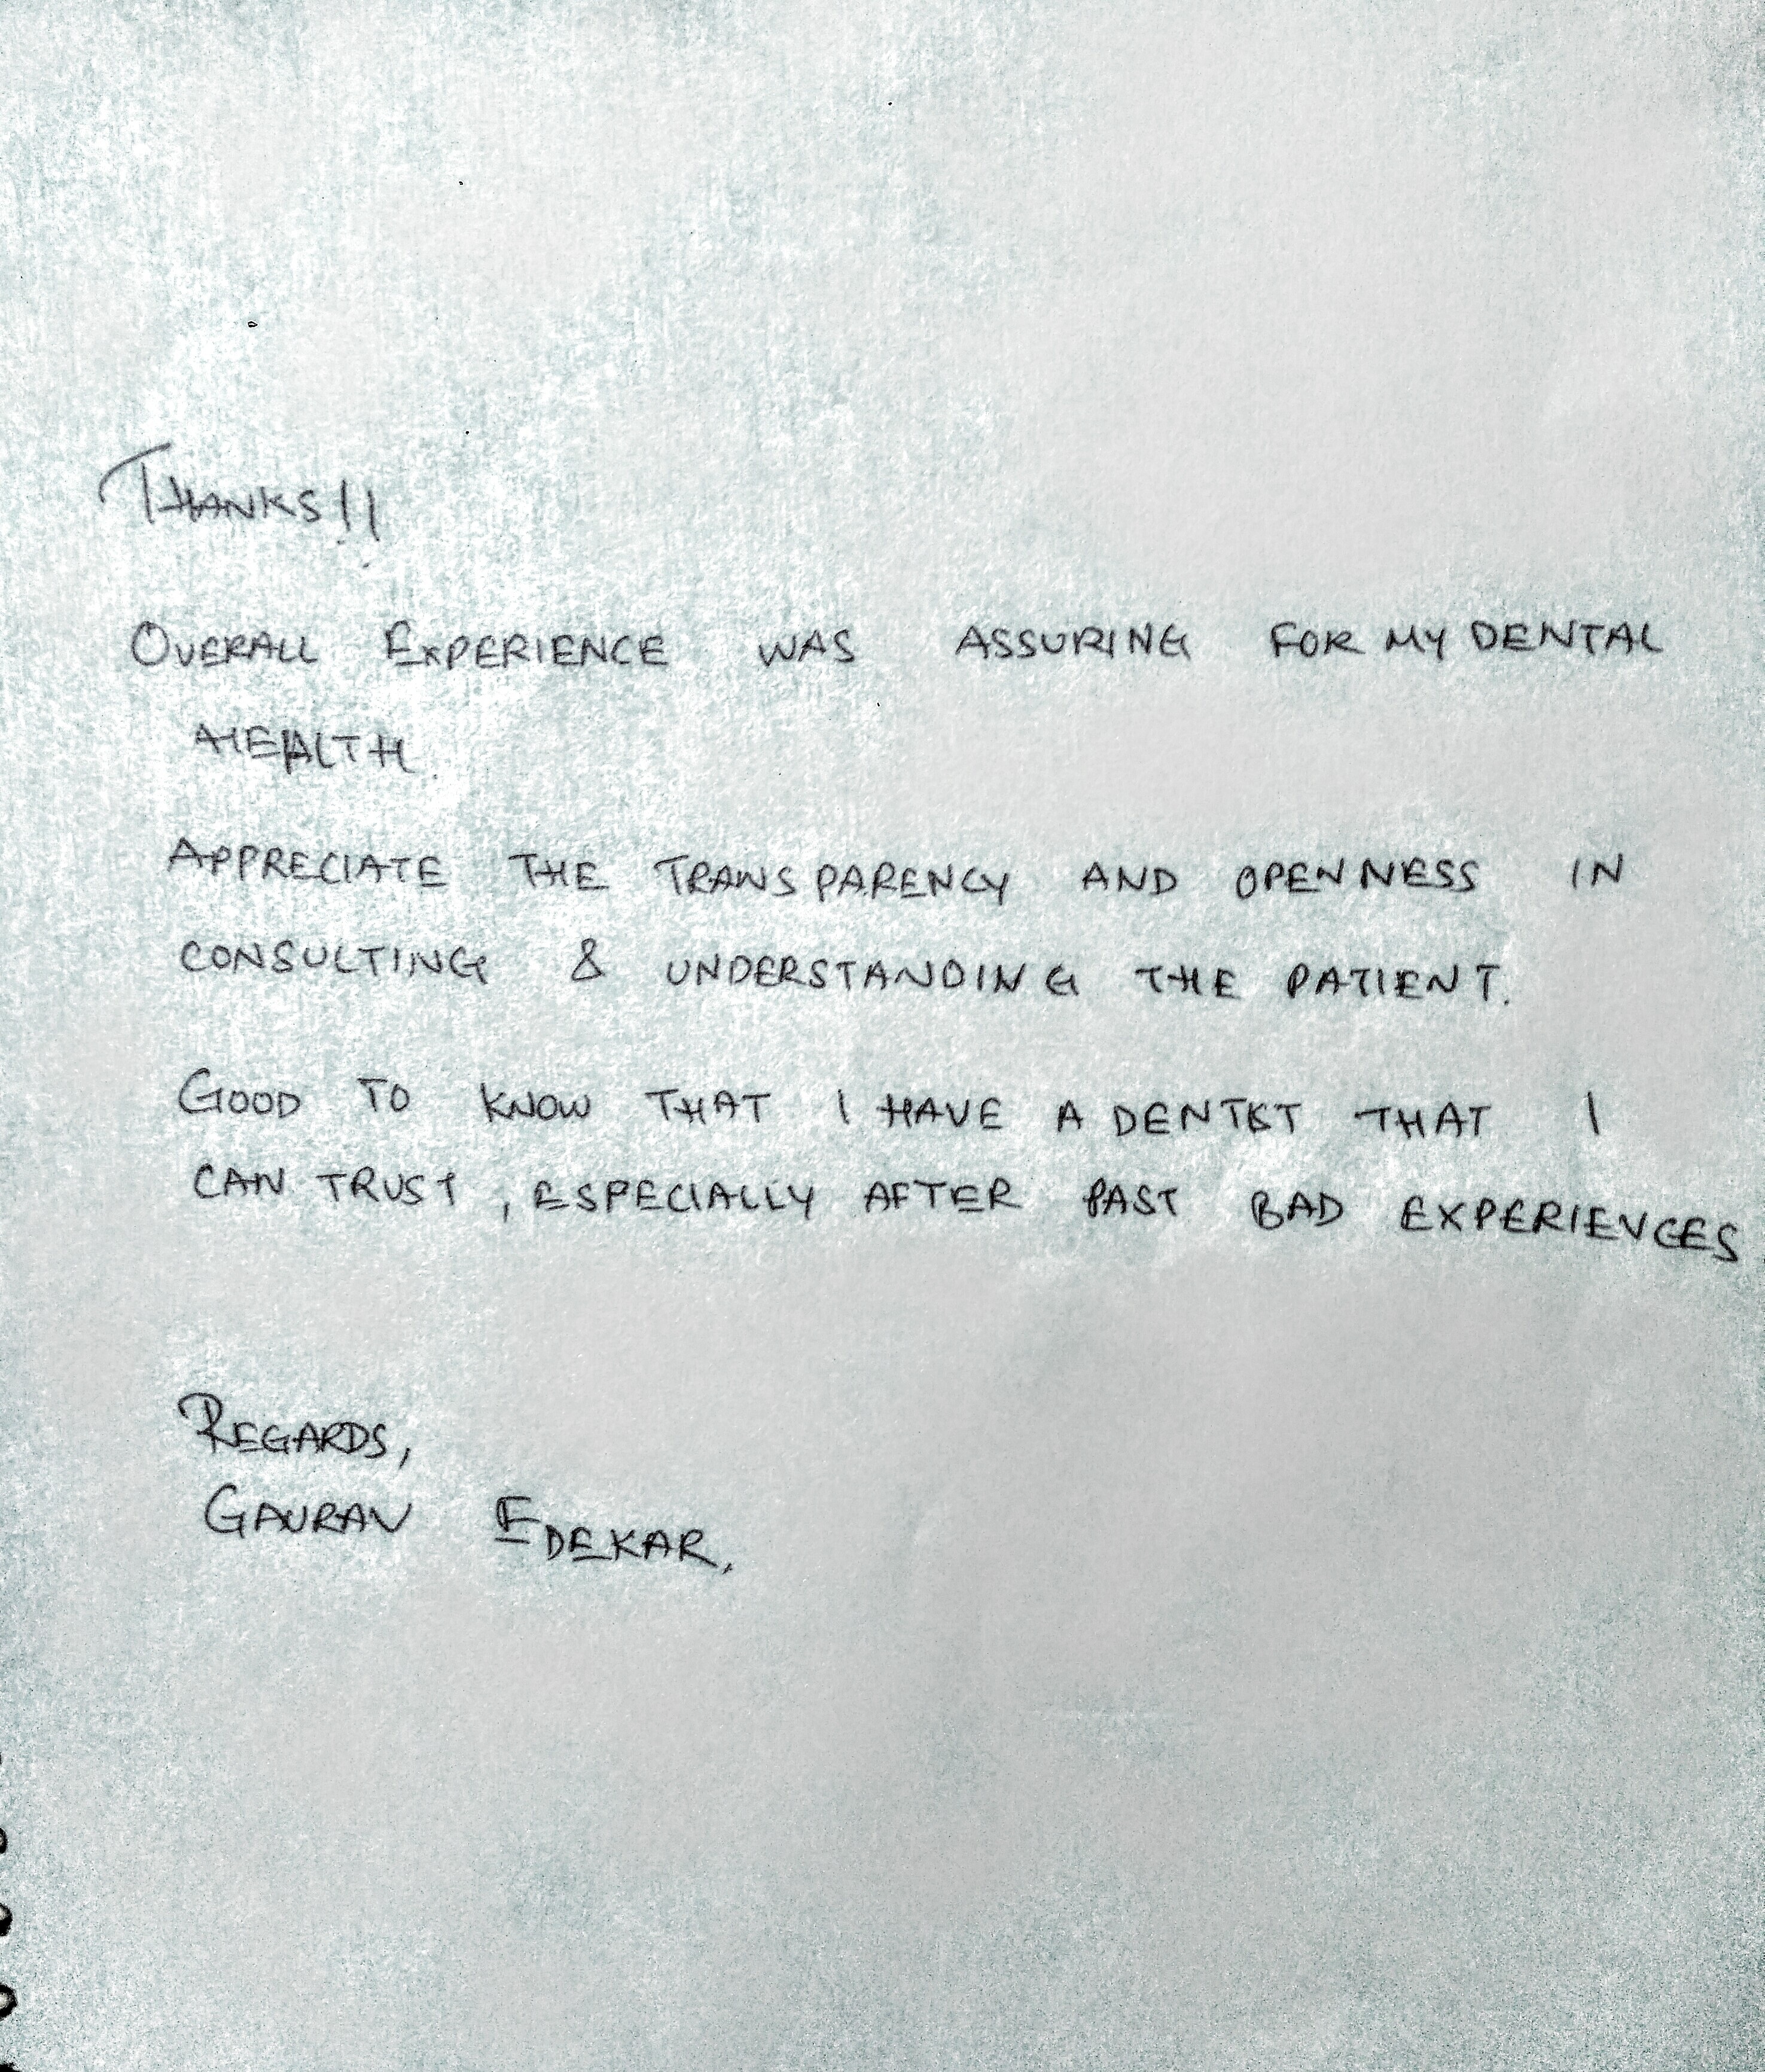 THANKS!!
OVERALL EXPERIENCE WAS ASSURING FOR MY DENTAL
HEALTH.
APPRECIATE THE TRANSPARENCY AND OPENNESS IN
CONSULTING & UNDERSTANDING THE PATIENT.
GOOD TO KNOW THAT I HAVE A DENTIST THAT I
CAN TRUST, ESPECIALLY AFTER PAST BAD EXPERIENCES
REGARDS,
GAURAV EDEKAR.